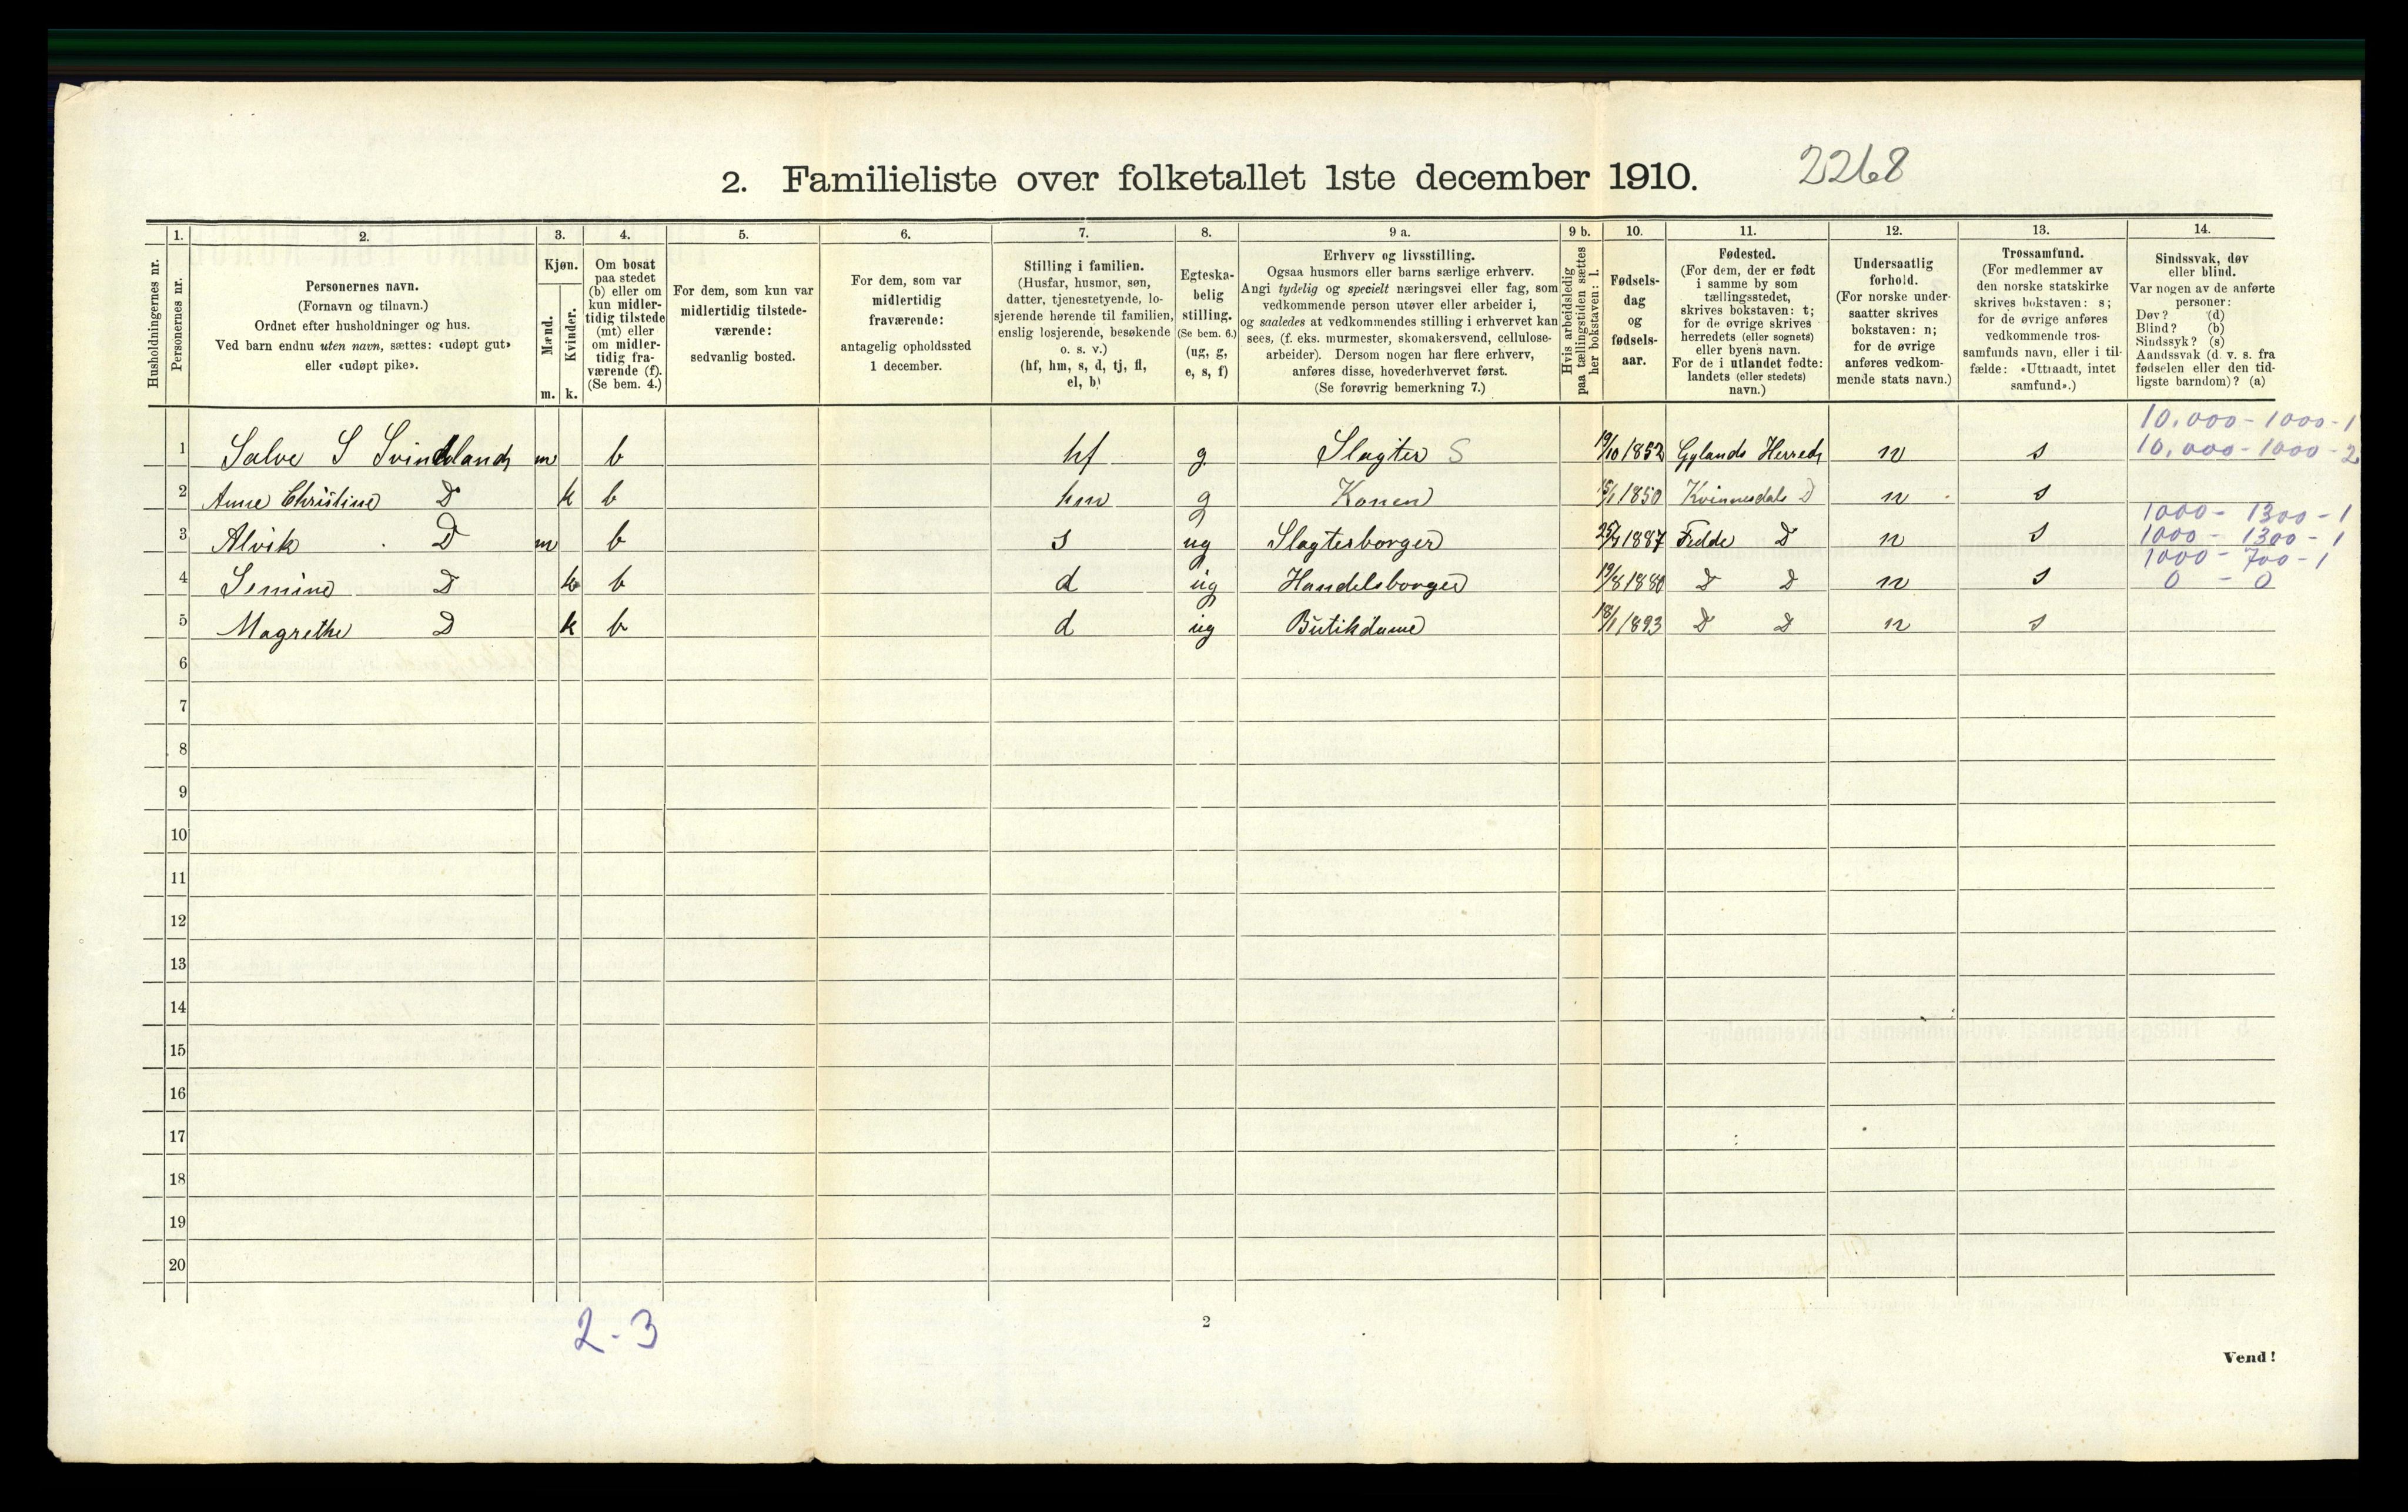 2. Familieliste over folketallet 1ste december 1910.
2268
Husholdningernes nr.
1.
Personernes nr.
2.
Personernes navn.
(Fornavn og tilnavn.)
Ordnet efter husholdninger og hus.
Ved barn endnu uten navn, sættes: «udøpt gut»
eller «udøpt pike».
3.
Kjøn.
Mænd.
Kvinder.
m. k.
4.
Om bosat
paa stedet
(b) eller om
kun midler-
tidig tilstede
(mt) eller
om midler-
tidig fra-
værende (f).
(Se bem. 4.)
5.
For dem, som kun var
midlertidig tilstede-
værende:
sedvanlig bosted.
6.
For dem, som var
midlertidig
fraværende:
antagelig opholdssted
1 december.
7.
Stilling i familien.
(Husfar, husmor, søn,
datter, tjenestetyende, lo-
sjerende hørende til familien,
enslig losjerende, besøkende
o. s. v.)
(hf, hm, s, d, tj, fl,
el, b)
8.
Egteska-
belig
stilling.
(Se bem. 6.)
(ug, g,
e, s, f)
9 a.
Erhverv og livsstilling.
Ogsaa husmors eller barns særlige erhverv.
Angi tydelig og specielt næringsvei eller fag, som
vedkommende person utøver eller arbeider i,
og saaledes at vedkommendes stilling i erhvervet kan
sees, (f. eks. murmester, skomakersvend, cellulose-
arbeider). Dersom nogen har flere erhverv,
anføres disse, hovederhvervet først.
(Se forøvrig bemerkning 7.)
9 b.
Hvis arbeidsledig
paa tællingstiden sættes
her bokstaven: l.
10.
Fødsels-
dag
og
fødsels-
aar.
11.
Fødested.
(For dem, der er født
i samme by som
tællingsstedet,
skrives bokstaven: t;
for de øvrige skrives
herredets (eller sognets)
eller byens navn.
For de i utlandet fødte:
landets (eller stedets)
navn.)
12.
Undersaatlig
forhold.
(For norske under-
saatter skrives
bokstaven: n;
for de øvrige
anføres vedkom-
mende stats navn.)
13.
Trossamfund.
(For medlemmer av
den norske statskirke
skrives bokstaven: s;
for de øvrige anføres
vedkommende tros-
samfunds navn, eller i til-
fælde: «Uttraadt, intet
samfund».)
14.
Sindssvak, døv
eller blind.
Var nogen av de anførte
personer:
Døv? (d)
Blind? (b)
Sindssyk? (s)
Aandssvak (d. v. s. fra
fødselen eller den tid-
ligste barndom)? (a)
10.000 - 1000 - 1
1 Salve S Svindland m b hf g Slagter S 19/10 1852 Gylands Herred n s 10.000 - 1000 - 2
2 Anne Christine D k b hm g Konen 15/1 1850 Kvinnesdals D n s
1000 - 1300 - 1
3 Alvik D m b s ug Slagterborger 1887 Fedde D n s 1000 - 1300 - 1
1000 - 700 - 1
4 Semine D k b d ug Handelsborger 19/8 1880 D D n s 0 - 0
5 Magrethe D k b d ug Butikdame 18/1 1893 D D n s
6
7
8
9
10
11
12
13
14
15
16
17
18
19
20
2 - 3
2
Vend!